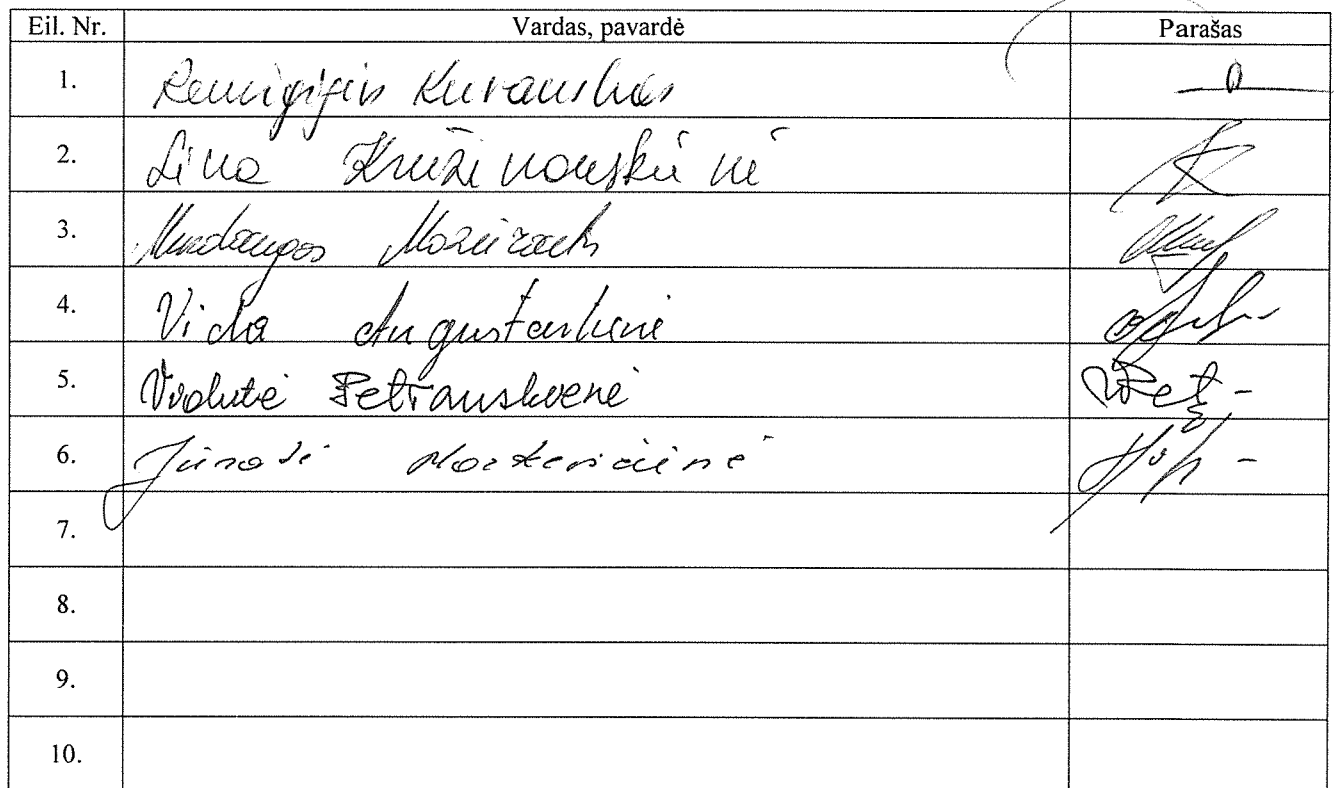 Eil. Nr. Vardas, pavardė Parašas
1. Remigijus Kuranskas
2. Lina Kružinauskienė
3. Mindaugas
4. Vida Augustaitienė
5. Vidutė Petrauskienė
6. Jūratė Mackevičienė
7.
8.
9.
10.